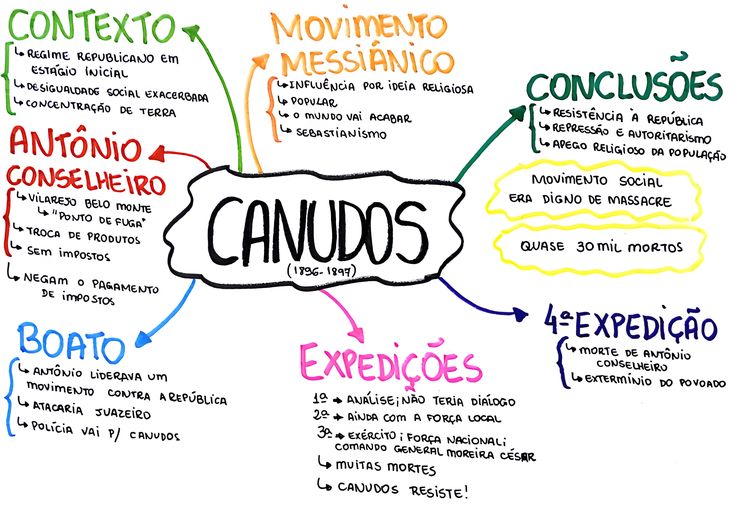 CONTEXTO
↳ REGIME REPUBLICANO EM
ESTÁGIO INICIAL
↳ DESIGUALDADE SOCIAL EXACERBADA
↳ CONCENTRAÇÃO DE TERRA
MOVIMENTO
MESSIÂNICO
↳ INFLUÊNCIA POR IDEIA RELIGIOSA
↳ POPULAR
↳ O MUNDO VAI ACABAR
↳ SEBASTIANISMO
CONCLUSÕES
↳ RESISTÊNCIA À REPÚBLICA
↳ REPRESSÃO E AUTORITARISMO
↳ APEGO RELIGIOSO DA POPULAÇÃO
MOVIMENTO SOCIAL
ERA DIGNO DE MASSACRE
QUASE 30 MIL MORTOS
ANTÔNIO
CONSELHEIRO
↳ VILAREJO BELO MONTE
↳ "PONTO DE FUGA"
↳ TROCA DE PRODUTOS
↳ SEM IMPOSTOS
↳ NEGAM O PAGAMENTO
DE IMPOSTOS
CANUDOS
(1896-1897)
BOATO
↳ ANTÔNIO LIDERAVA UM
MOVIMENTO CONTRA A REPÚBLICA
↳ ATACARIA JUAZEIRO
↳ POLÍCIA VAI P/ CANUDOS
EXPEDIÇÕES
1ª → ANÁLISE; NÃO TERIA DIÁLOGO
2ª → AINDA COM A FORÇA LOCAL
3ª → EXÉRCITO; FORÇA NACIONAL;
COMANDO GENERAL MOREIRA CÉSAR
↳ MUITAS MORTES
↳ CANUDOS RESISTE!
4ª EXPEDIÇÃO
↳ MORTE DE ANTÔNIO
CONSELHEIRO
↳ EXTERMÍNIO DO POVOADO